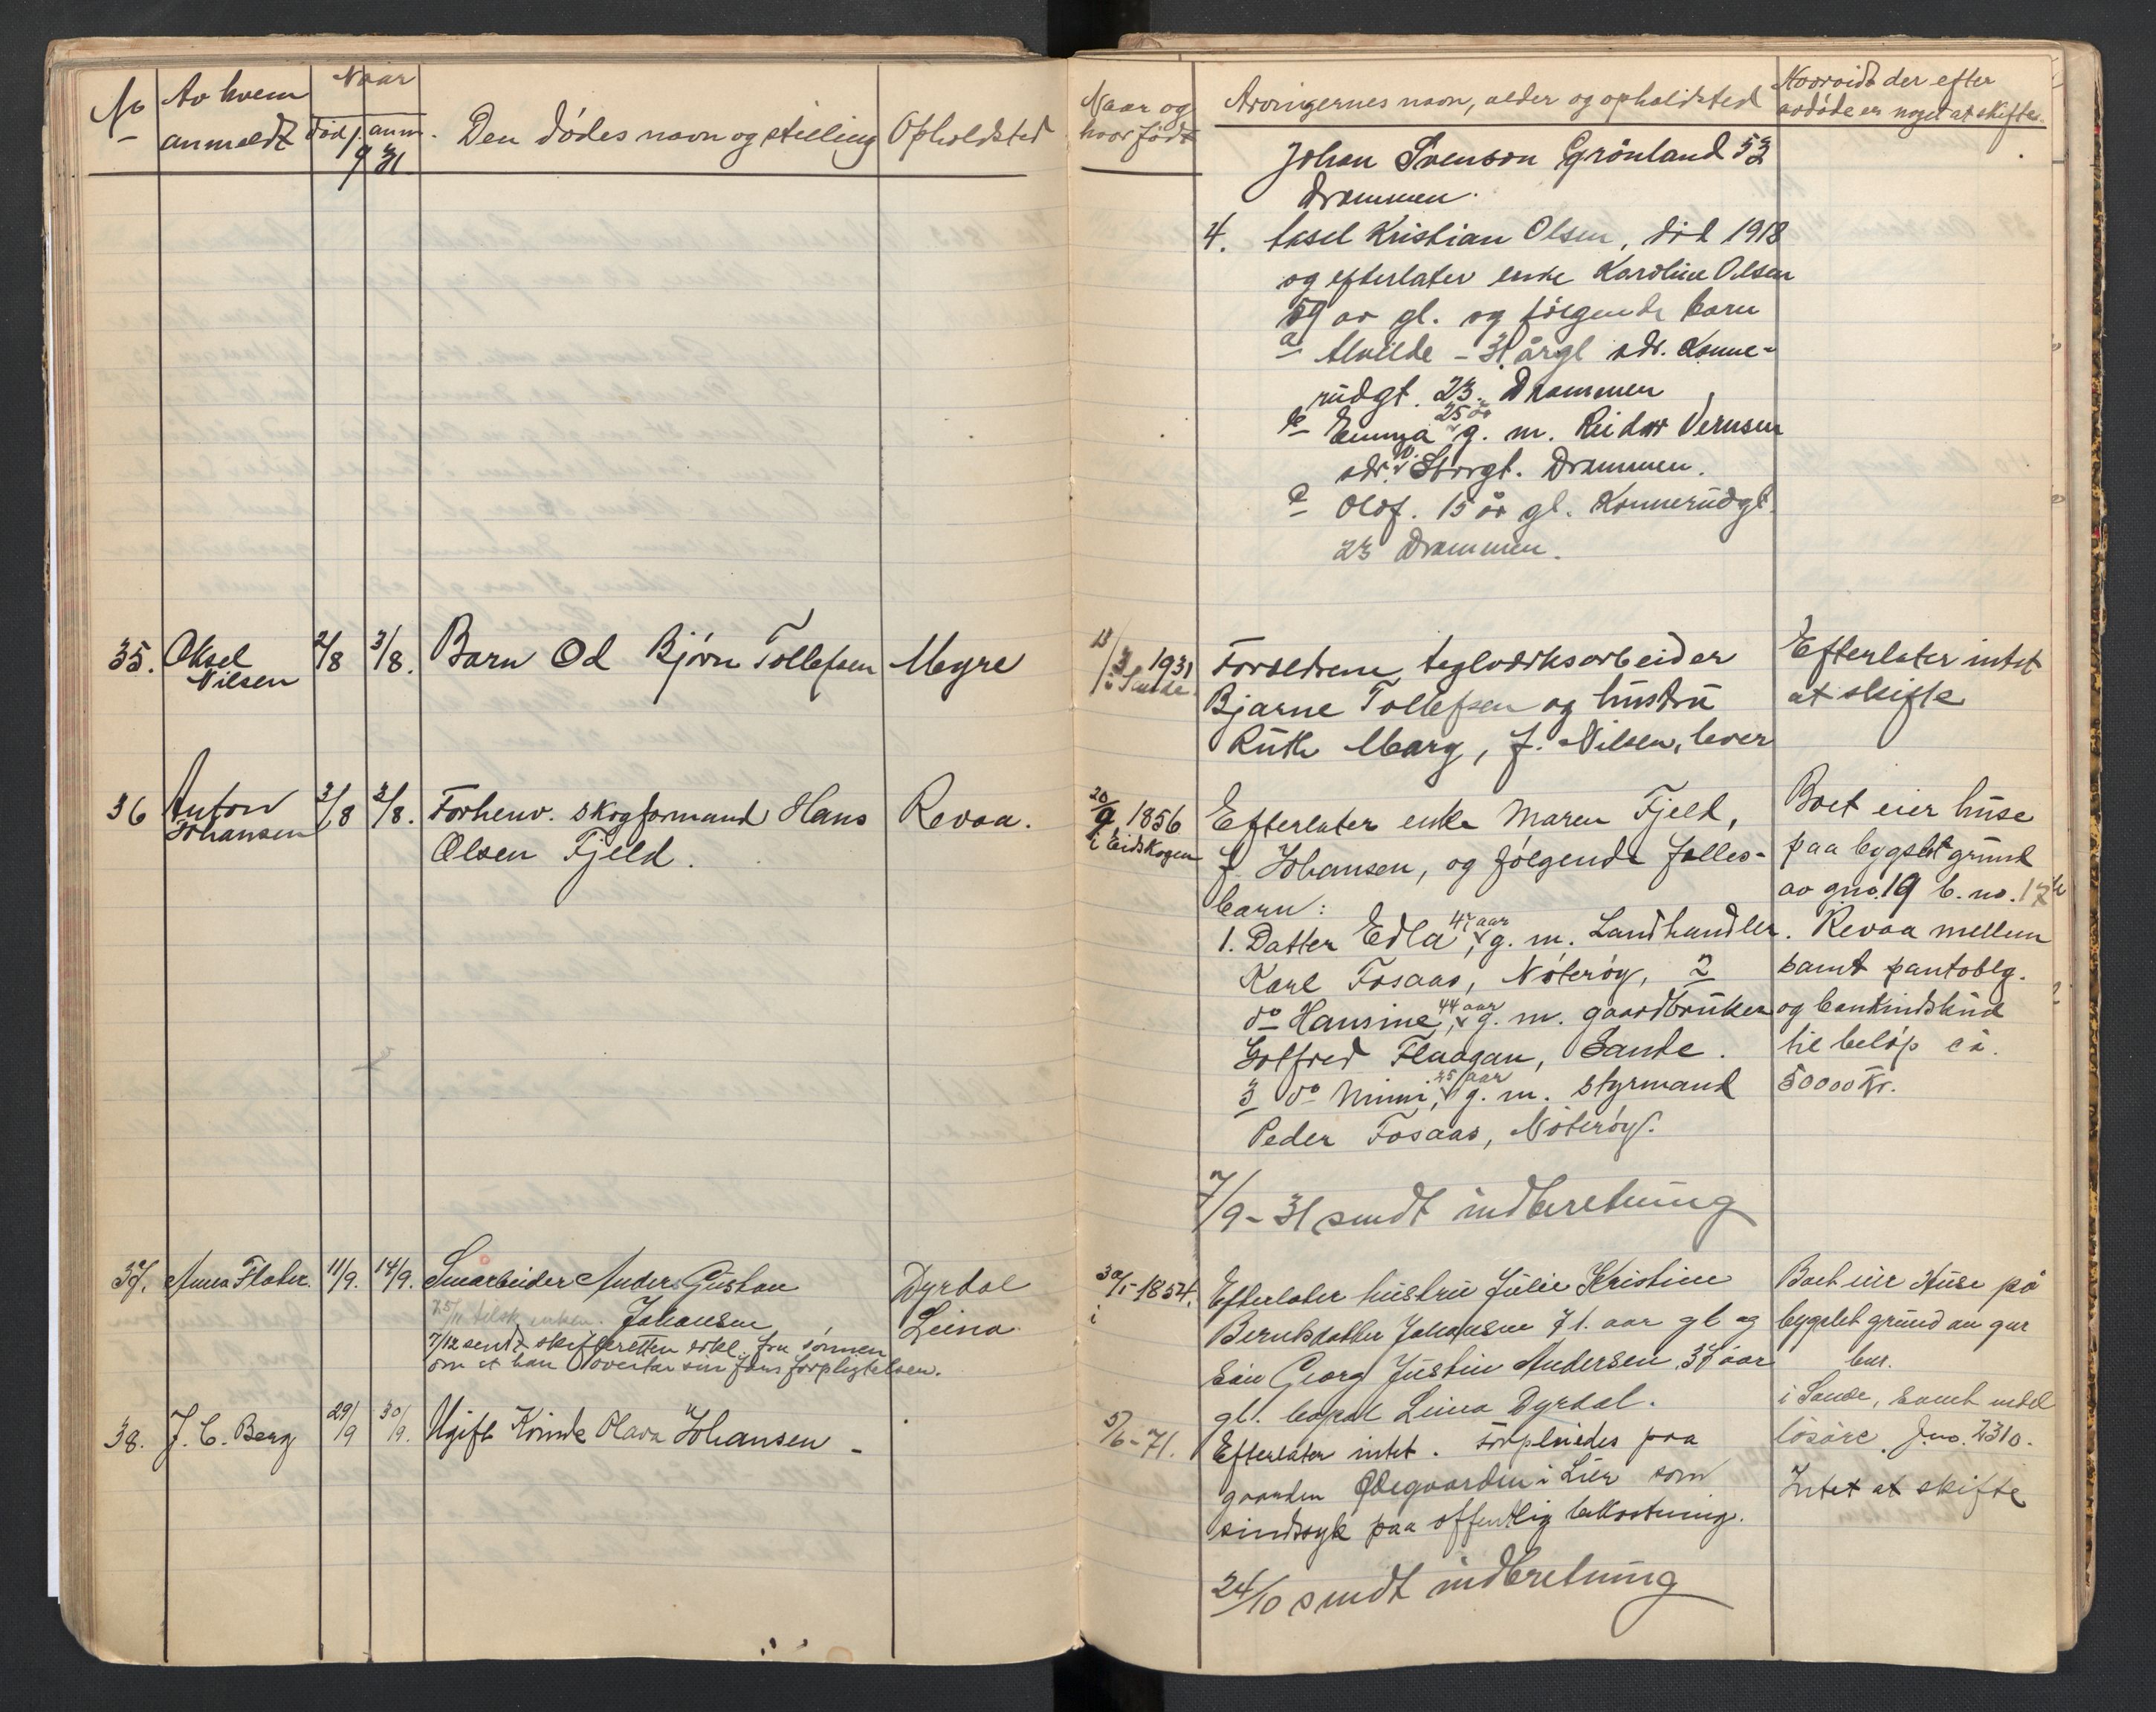 No
Av hvem anmeldt
Naar
død. anm.
9 31
Den dødes navn og stilling
Opholdsted
Naar og hvor født
Arvingernes navn, alder og opholdsted
Hvorvidt der efter avdøde er noget at skifte.
Johan Svenson Grönland 53
Drammen.
4. Aksel Kristian Olsen, död 1918
og efterlater enke Karoline Olsen
59 år gl. og fölgende barn
a Alvilde - 31 årgl adr. Konne-
rudgt. 23. Drammen
b Emma 25 år g. m. Reidar Vernsen
adr. Storgt. Drammen.
c Olaf. 15 år gl. Konnerudgt.
23 Drammen.
35. Aksel Nilsen 2/8 3/8. Barn Od Bjørn Tollefsen Myre
13/3 1931
i Sande.
Foreldrene teglverksarbeider
Bjarne Tollefsen og hustru
Ruth Marg, f. Nilsen, lever
Efterlater intet
at skifte
36 Anton Johansen 3/8 3/8. Forhenv. skogformand Hans Revaa.
Olsen Fjeld.
20/9 1856
i Eidskogen
Efterlater enke Maren Fjeld,
f. Johansen, og følgende felles-
barn:
1. Datter Edla, 47 aar g. m. Landhandler
Karl Fosaas, Nøterøy, 2
do Hansine, 44 aar g. m. gaardbruker
Gotfred Flaagan, Sande.
3 do Mimi, 35 aar g. m. styrmand
Peder Fosaas, Nøterøy.
Boet eier huse
paa bygslet grund
av gno. 19 b. no. 17
Revaa mellem
samt pantoblg.
og bankindskud
til beløp ca.
50000 Kr.
7/9 - 31 sendt indberetning
37. Anna Flater. 11/9. 14/9. Småarbeider Anders Gustav Dyrdal
25/11 tilsk. enken. Johansen Leina.
7/12 sendt skifteretten erkl. fra sønnen
om at han overtar sin fars forpligtelser.
30/1-1854.
i
Efterlater hustru Julie Kristine
Berntsdatter Johansen 71. aar gl og
Søn Georg Justin Andersen, 37 aar
gl. bopæl Leina Dyrdal.
Boet eier Huse på
bygslet grund av gnr
bnr.
i Sande, samt endel
løsøre. J.no. 2310.
38. J. C. Berg 29/9 30/9. Ugift Kvinde Olava Johansen -
5/6-71.
Efterlater intet. Forpleiedes paa
gaarden Ødegaarden i Lier som
sindssyk paa offentlig bekostning.
Intet at skifte
24/10 sendt indberetning